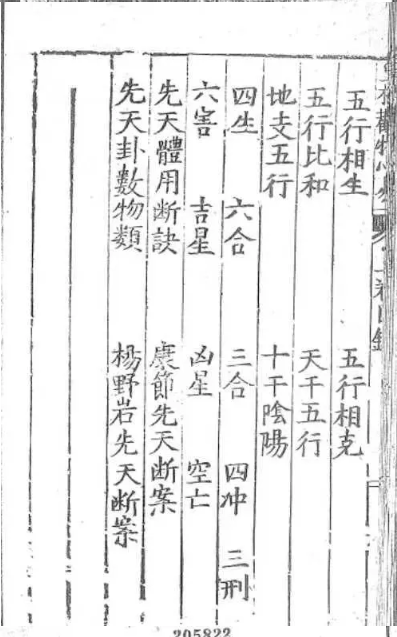 五行相生　五行相克
五行比和　天干五行
地支五行　十干陰陽
四生　六合　三合　四冲　三刑
六害　吉星　凶星　空亡
先天體用断訣　康節先天断案
先天卦數物類　楊野岩先天断案
205822